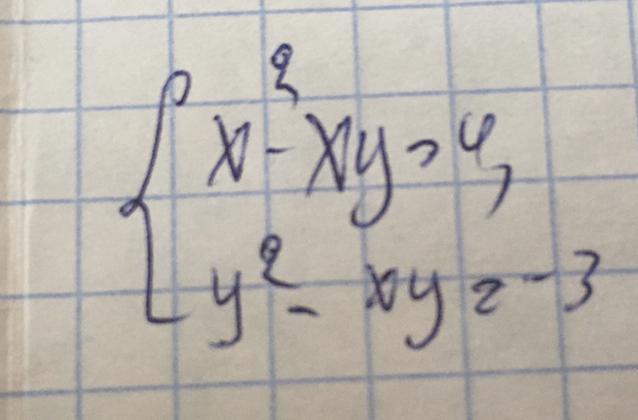 x² - xy = 4,
y² - xy = -3